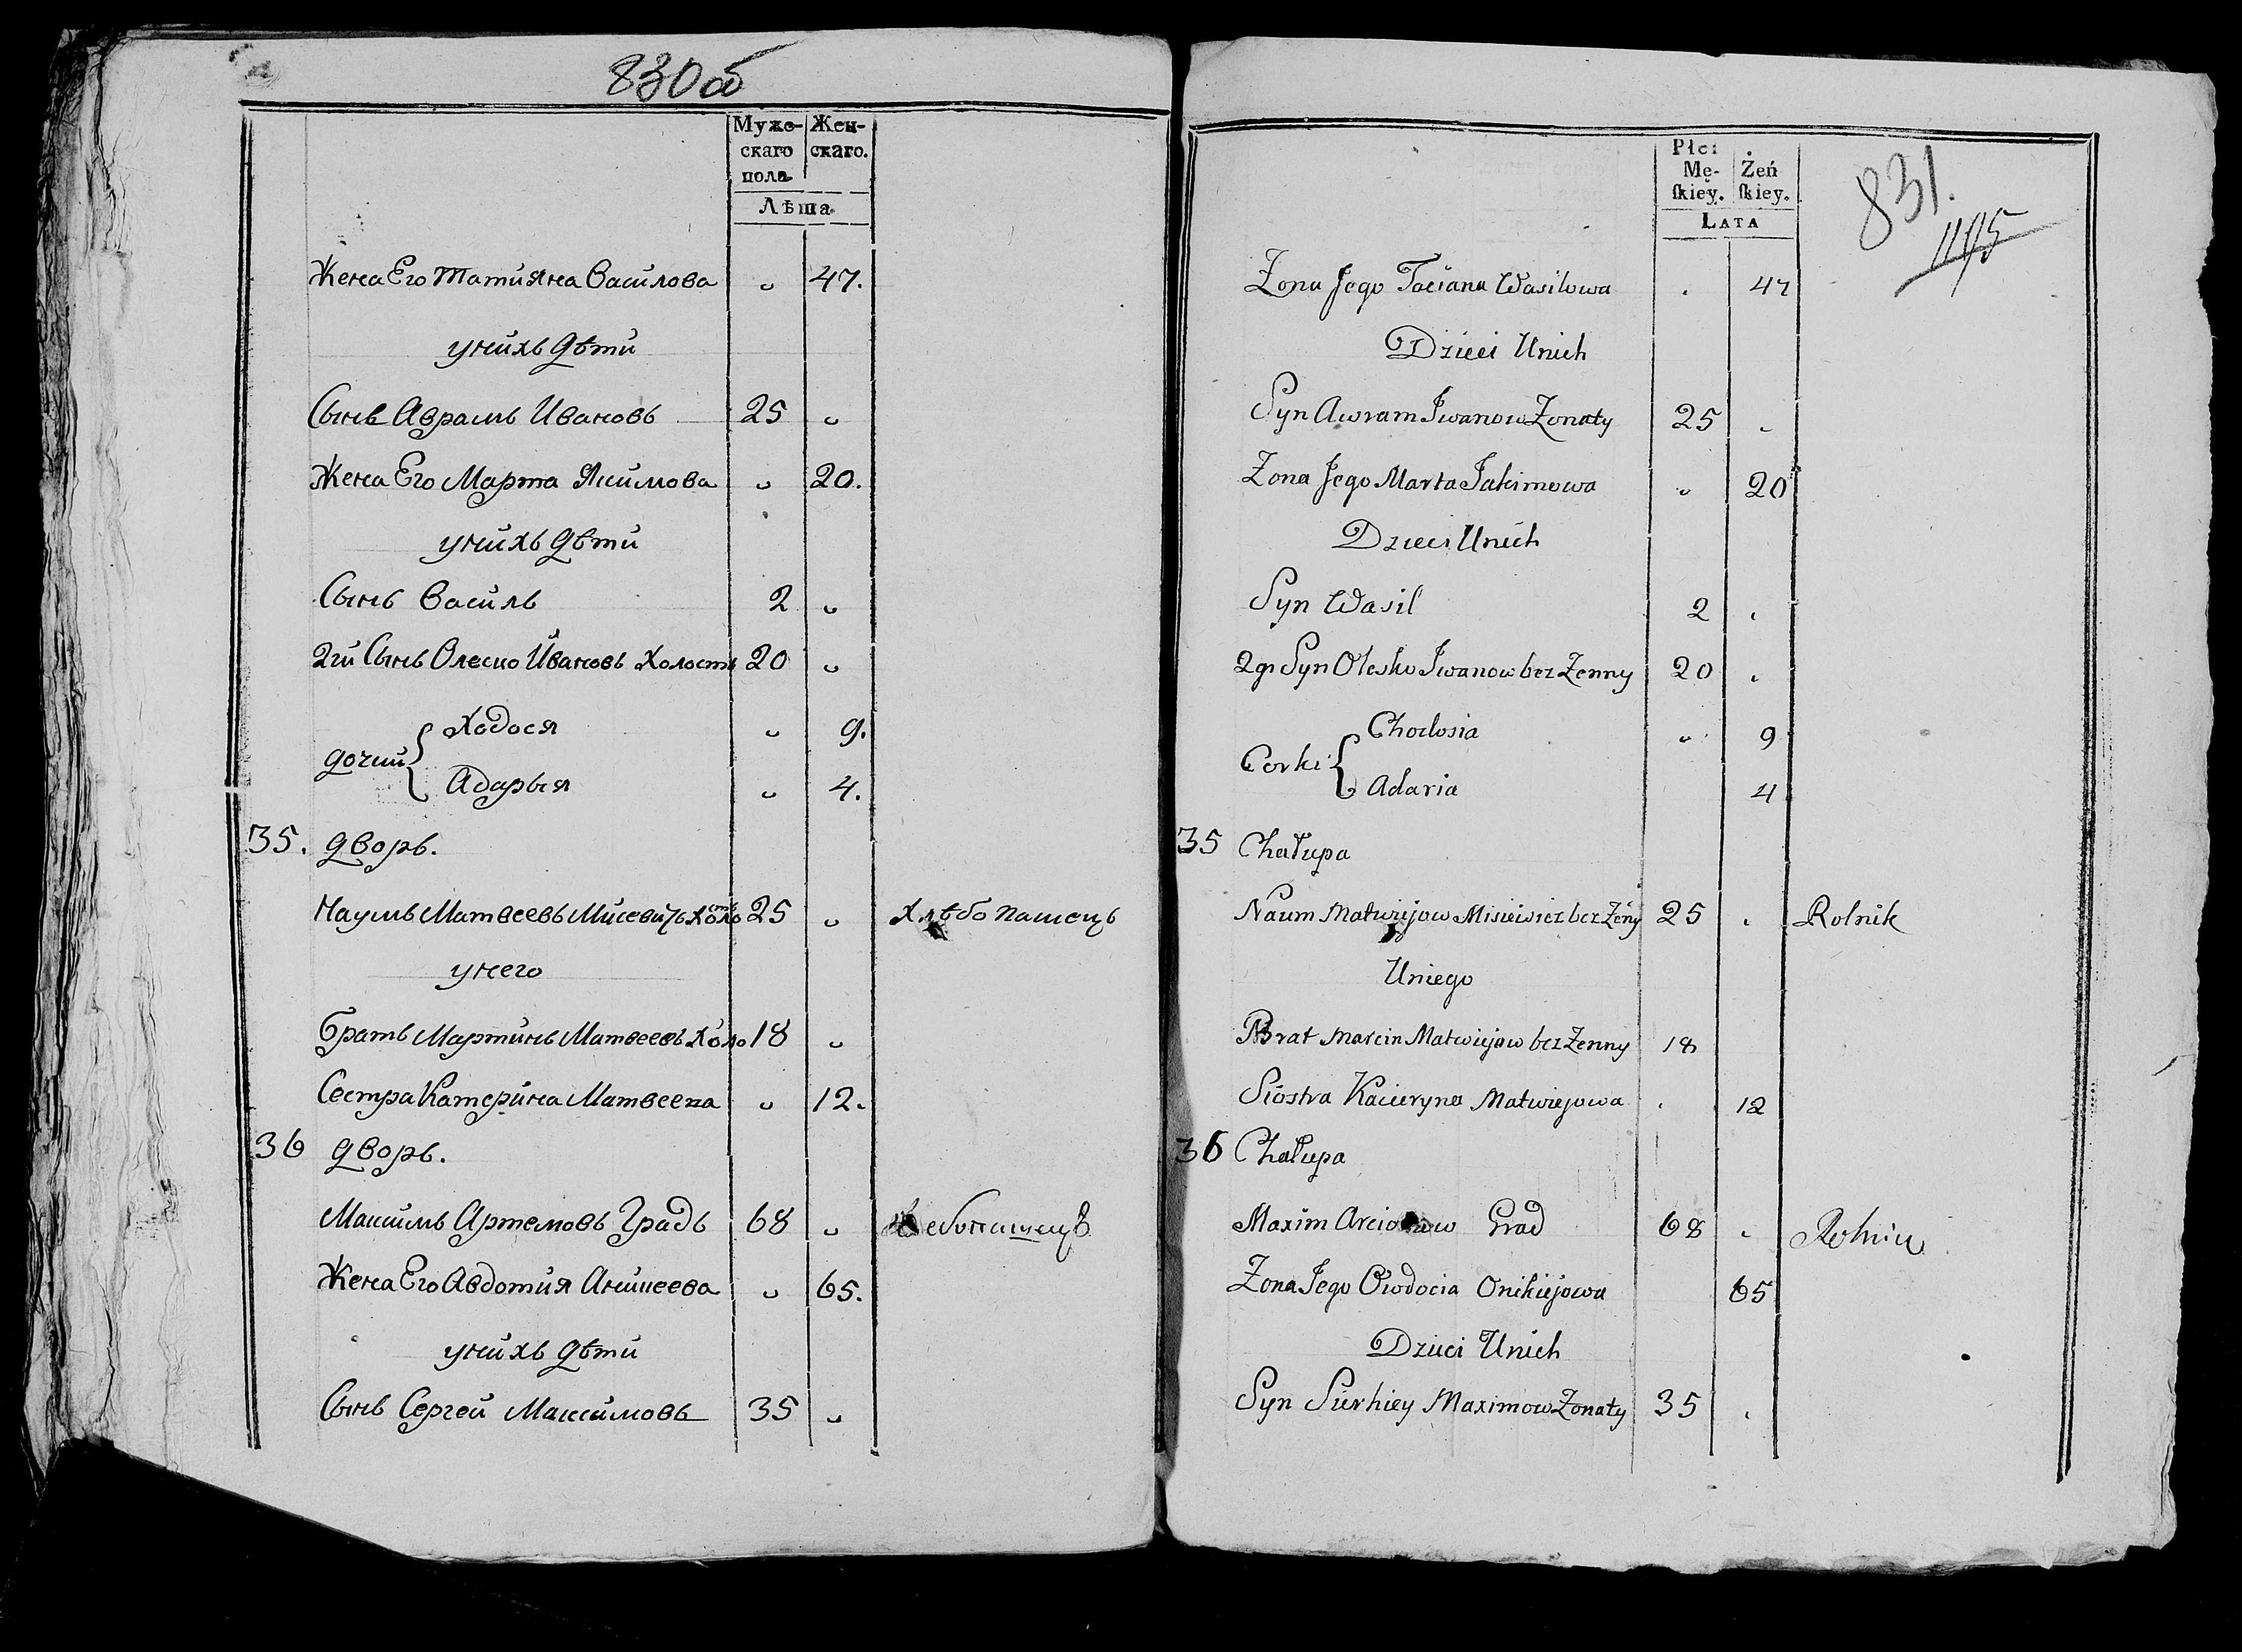 830об
Мужескаго пола Женскаго.
Лѣта
Жена Его Татияна Василова 47.
унихъ дѣти
Сынъ Аврамъ Ивановъ 25
Жена Его Марта Якимова 20.
унихъ дѣти
Сынъ Василь 2
2й Сынъ Олеско Ивановъ холостъ 20
дочки { Ходося 9.
Адарья 4.
35. дворъ.
Наумъ Матвеевъ Мисевичъ холостъ 25 хлѣбопашецъ
унего
братъ Мартинъ Матвеевъ холо 18
Сестра Катерина Матвеева 12.
36 дворъ.
Максимъ Артемовъ Градъ 68
Жена Его Авдотия Аникеева 65.
унихъ дѣти
Сынъ Сергей Максимовъ 35
Płci Męſkiey. Żeńſkiey.
LATA
831.
Zona Jego Taciana Wasilowa 47
Dzieci Unich
Syn Awram Iwanow Zonaty 25
Zona Jego Marta Jakimowa 20
Dzieci Unich
Syn Wasil 2
2gi Syn Olesko Iwanow bez Zenny 20
Corki { Chodosia 9
Adaria 4
35 Chałupa
Naum Matwiejow Misiewicz bez Żeny 25 Rolnik
Uniego
Brat Marcin Matwiejow bez Zenny 18
Siostra Kacieryna Matwiejowa 12
36 Chałupa
Maxim Grad 68 Rolnik
Zona Jego Owdocia Onikiejowa 65
Dzieci Unich
Syn Sierhiey Maximow Zonaty 35